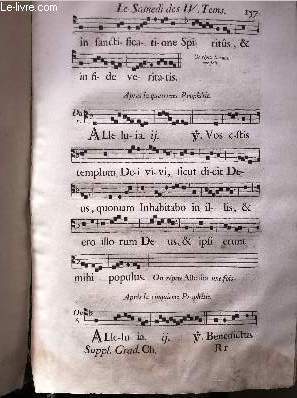 Le-livre.com
Le Samedi des IV. Tems. 157
in sancti- fica- ti-one Spi- ritûs, &
in fi- de ve- rita-tis.
Après la quatrieme Prophétie.
ALle- lu- ia. ij. ℣. Vos estis
templum De-i vi-vi, sicut di-cit De-
us, quoniam Inhabitabo in il- lis, &
ero illo rum De- us, & ipsi erunt
mihi populus. On répete Alleluia une fois.
Après la cinquieme Prophétie.
ALle-lu- ia. ij. ℣. Benedictus
Suppl. Grad. Ch. Rr